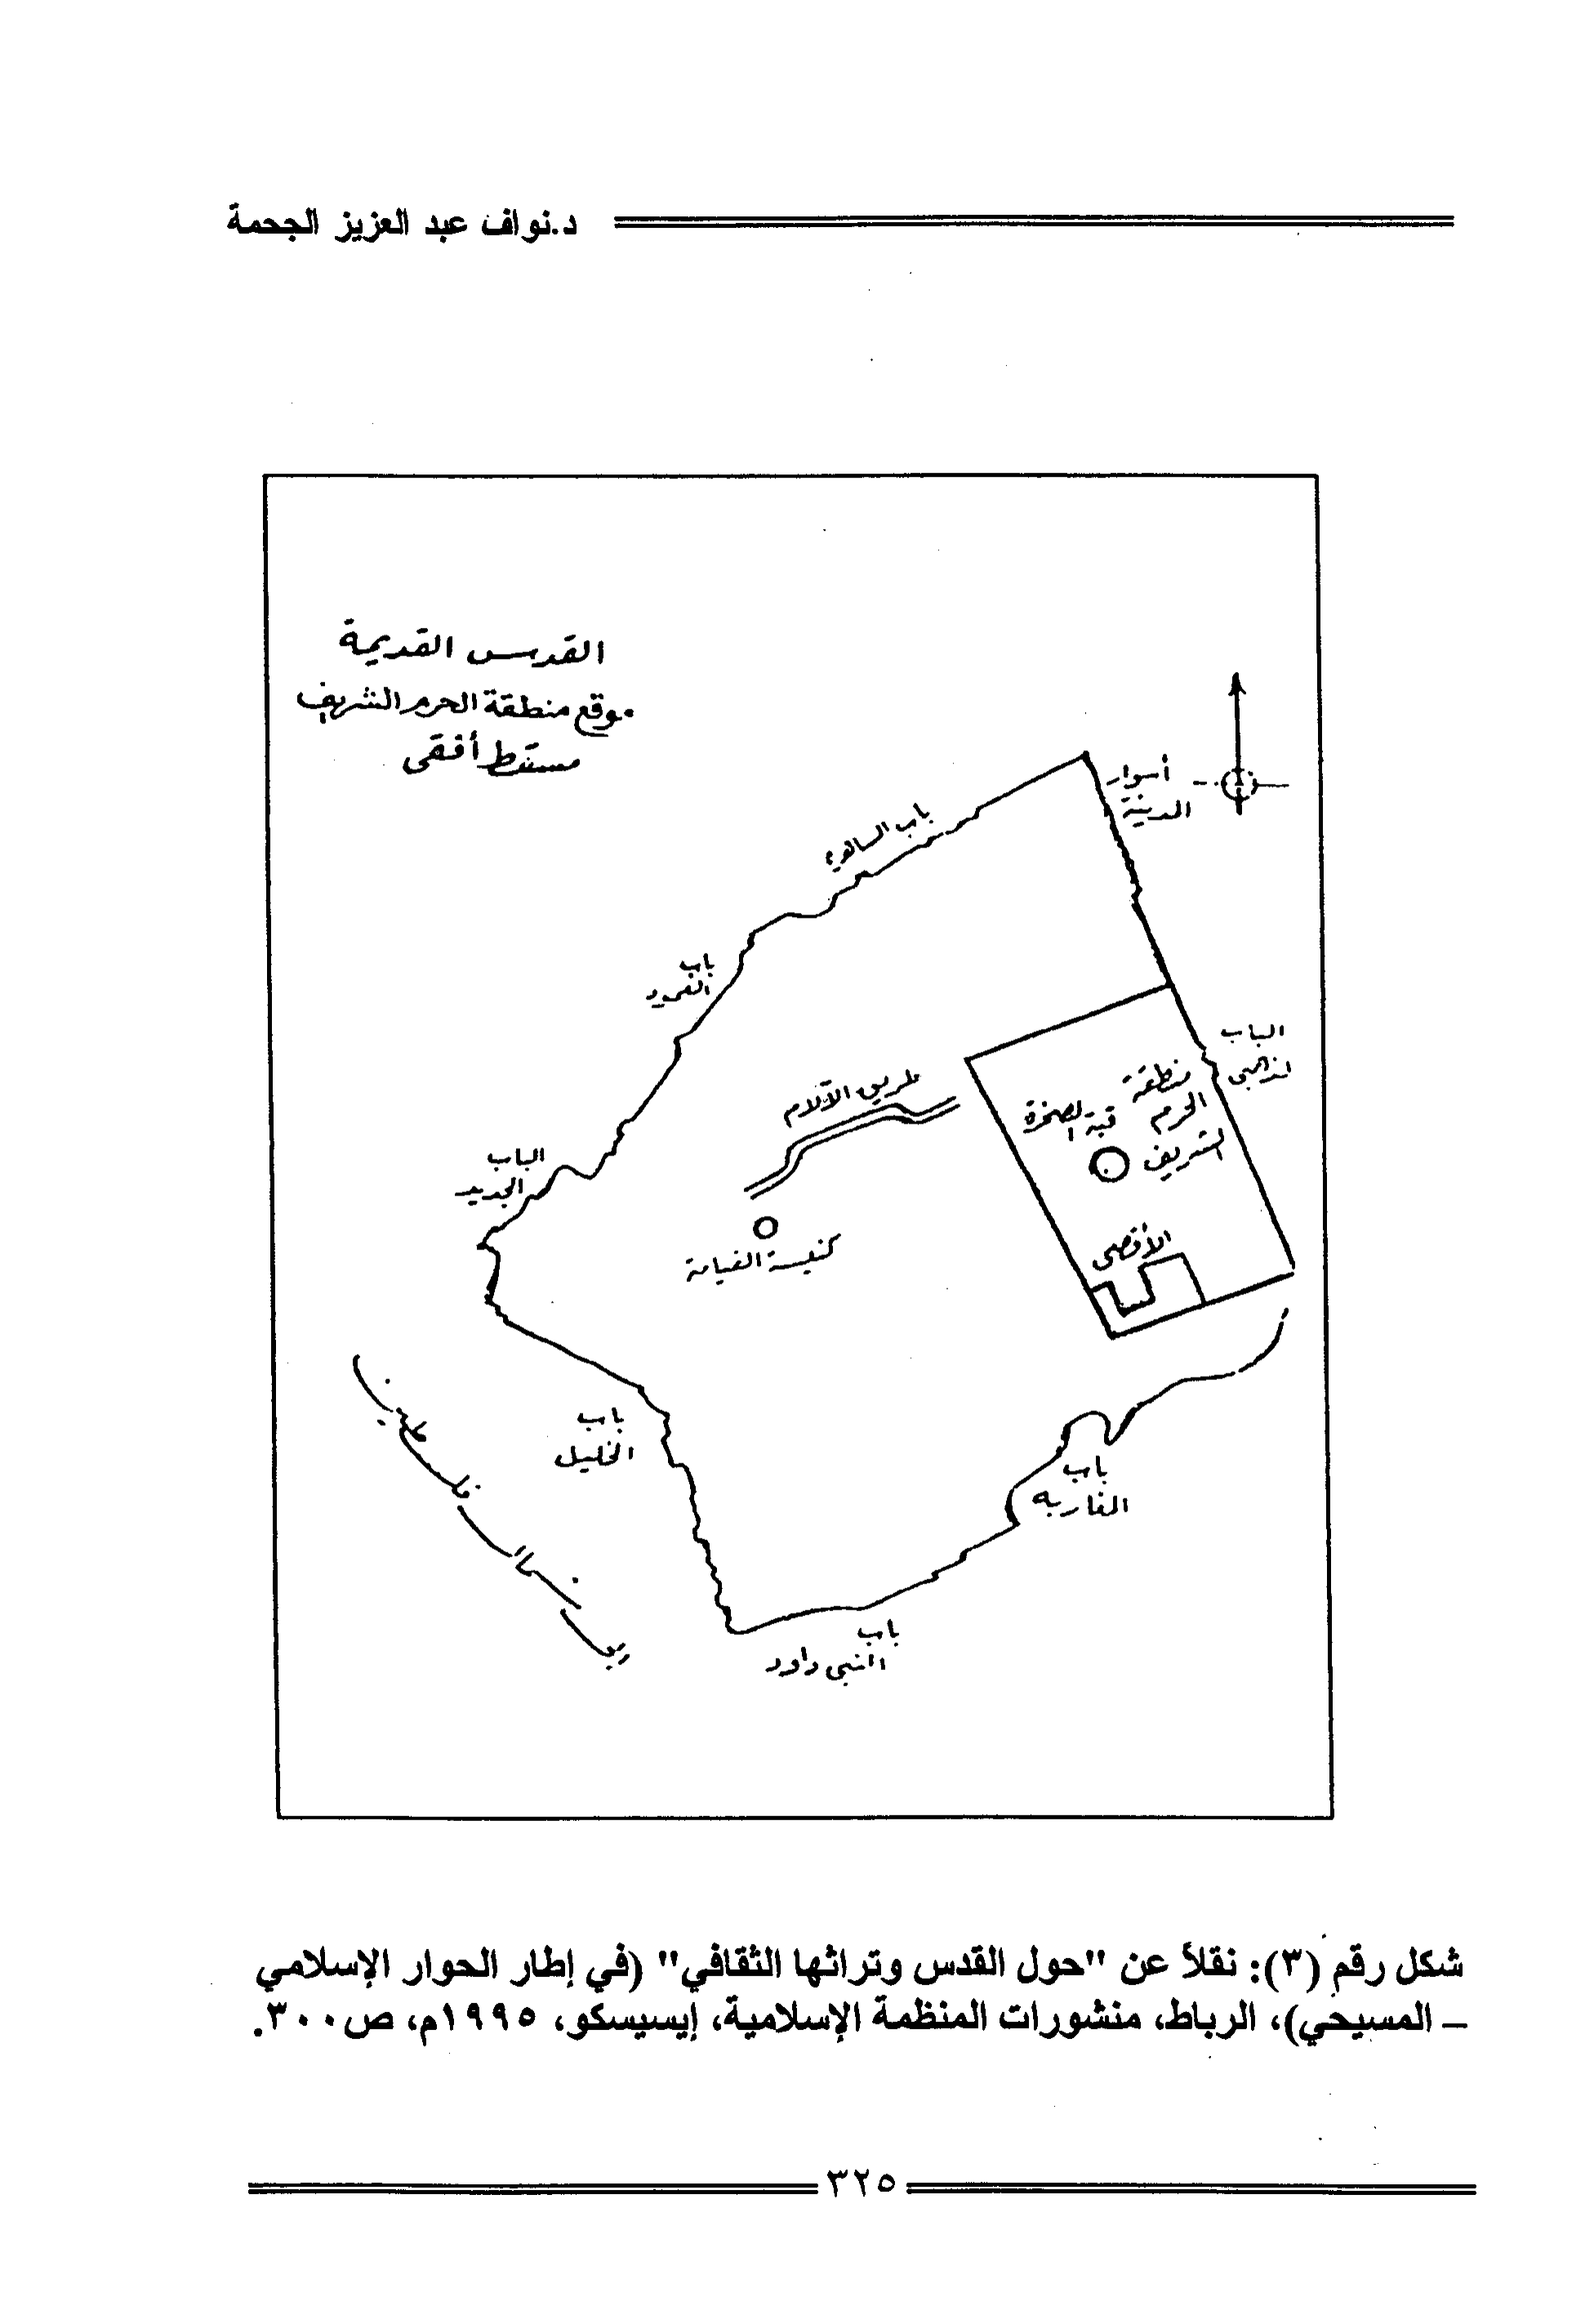 د.نواف عبد العزيز الجحمة
القدس القديمة
موقع منطقة الحرم الشريف
مسقط أفقى
أسوار
المدينة
باب الساهرة
باب
العمود
الباب
الذهبى
منطقة
الحرم
الشريف
قبة الصخرة
طريق الآلام
الباب
الجديد
الأقصى
كنيسة القيامة
باب
الخليل
باب
المغاربه
باب
النبى داود
شكل رقم (٣): نقلاً عن "حول القدس وتراثها الثقافي" (في إطار الحوار الإسلامي
– المسيحي)، الرباط، منشورات المنظمة الإسلامية، إيسيسكو، ١٩٩٥م، ص٣٠٠.
٣٢٥